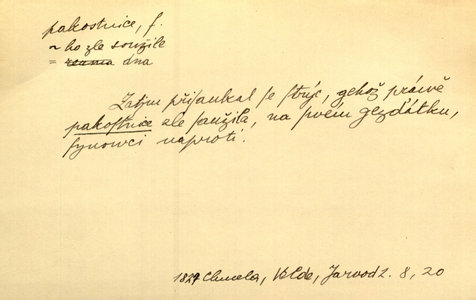 pakostnice, f.
~ ho zle soužile
= reuma dna
Zatjm přisaukal se strýc, gehož práwě
pakostnice zle saužila, na swém gezďátku,
synowci naproti.
1827 Chmela, Jarwodz. 8, 20